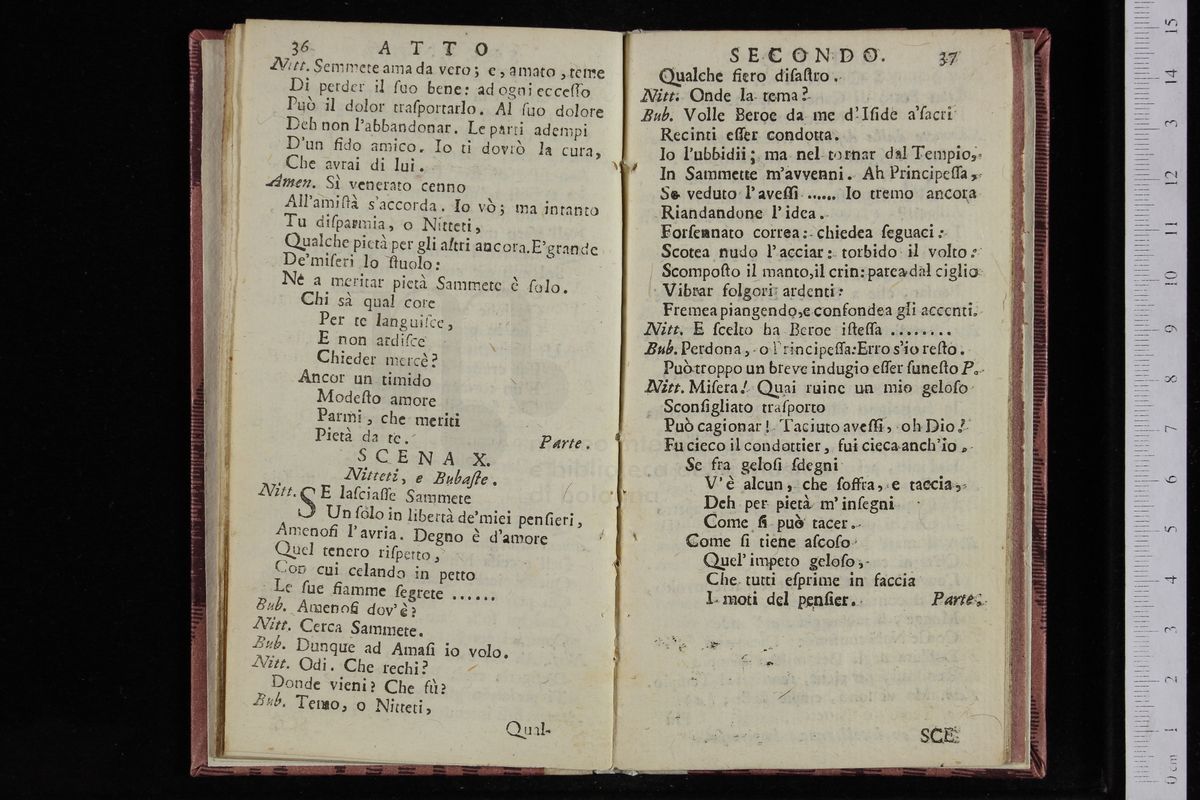 36 ATTO
Nitt. Semmete ama da vero; e, amato, teme
Di perder il ſuo bene: ad ogni ecceſſo
Può il dolor traſportarlo. Al ſuo dolore
Deh non l'abbandonar. Le parti adempi
D'un fido amico. Io ti dovrò la cura,
Che avrai di lui.
Amen. Sì venerato cenno
All'amiſtà s'accorda. Io vò; ma intanto
Tu diſparmia, o Nitteti,
Qualche pietà per gli altri ancora. E' grande
De' miſeri lo ſtuolo:
Nè a meritar pietà Sammete è ſolo.
Chi sà qual core
Per te languiſce,
E non ardiſce
Chieder mercè?
Ancor un timido
Modeſto amore
Parmi, che meriti
Pietà da te. Parte.
SCENA X.
Nitteti, e Bubaſte.
Nitt. SE laſciaſſe Sammete
Un ſolo in libertà de' miei penſieri,
Amenofi l'avria. Degno è d'amore
Quel tenero riſpetto,
Con cui celando in petto
Le ſue fiamme ſegrete ......
Bub. Amenofi dov'è?
Nitt. Cerca Sammete.
Bub. Dunque ad Amaſi io volo.
Nitt. Odi. Che rechi?
Donde vieni? Che fù?
Bub. Temo, o Nitteti,
Qual-
SECONDO. 37
Qualche fiero diſaſtro.
Nitt. Onde la tema?
Bub. Volle Beroe da me d'Iſide a' ſacri
Recinti eſſer condotta.
Io l'ubbidii; ma nel tornar dal Tempio,
In Sammette m'avvenni. Ah Principeſſa,
Se veduto l'aveſſi ...... Io tremo ancora
Riandandone l'idea.
Forſennato correa: chiedea ſeguaci:
Scotea nudo l'acciar: torbido il volto:
Scompoſto il manto, il crin: parea dal ciglio
Vibrar folgori ardenti:
Fremea piangendo, e confondea gli accenti.
Nitt. E ſcelto ha Beroe iſteſſa ........
Bub. Perdona, o Principeſſa: Erro s'io reſto.
Può troppo un breve indugio eſſer funeſto P.
Nitt. Miſera! Quai ruine un mio geloſo
Sconſigliato traſporto
Può cagionar! Taciuto aveſſi, oh Dio!
Fu cieco il condottier, fui cieca anch'io.
Se fra geloſi ſdegni
V'è alcun, che ſoffra, e taccia,
Deh per pietà m'inſegni
Come ſi può tacer.
Come ſi tiene aſcoſo
Quel' impeto geloſo,
Che tutti eſprime in faccia
I moti del penſier. Parte.
SCE